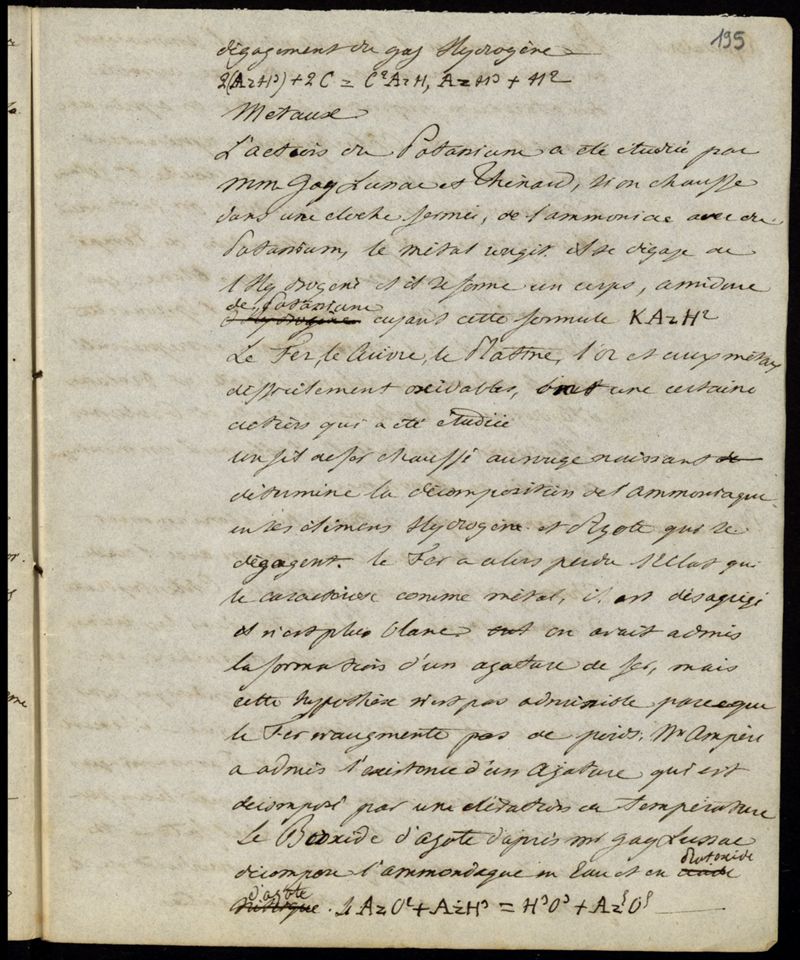 195
dégagement du gaz Hydrogène
2(AzH³) + 2C = C²AzH, AzH³ + H²
Metaux
L'action du Potassium a été étudiée par
mm Gay Lussac et Thénard, si on chauffe
dans une cloche fermée, de l'ammoniac avec du
Potassium, le métal réagit. il se dégage de
l'Hydrogène et il se forme un corps, amidure
de Potassium
d'Hydrogène ayant cette formule KAzH²
Le Fer, le Cuivre, le Platine, l'or et aux métaux
difficilement oxidables, ont une certaine
action qui a été étudiée
un fil de fer chauffé au rouge naissant de
détermine la décomposition de l'ammoniaque
en ses élémens Hydrogène et d'Azote qui se
dégagent. le Fer a alors perdu l'Eclat qui
le caractérise comme métal, il est désagrégé
et n'est plus blanc. on avait admis
la formation d'un azoture de fer, mais
cette hypothèse n'est pas admissible parce que
le Fer n'augmente pas de poids. Mr Ampère
a admis l'existence d'un Azoture qui est
décomposé par une élévation de température
Le Bioxide d'azote d'après mr Gay Lussac
décompose l'ammoniaque en Eau et en acide
Protoxide
d'azote
nitrique. AzO² + AzH³ = H³O³ + Az⁵O⁵